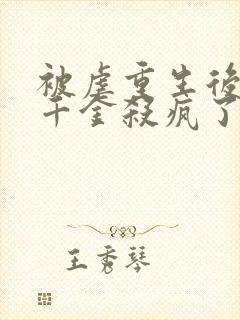 被虐重生後
千金殺瘋了
王秀琴